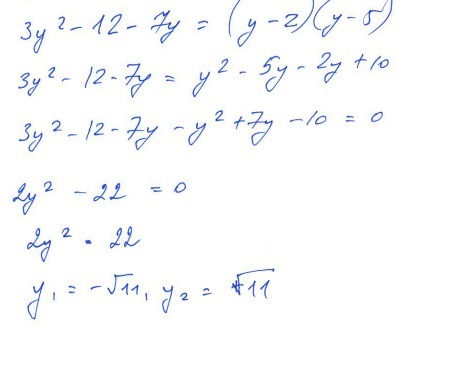 3y² - 12 - 7y = (y - 2)(y - 5)
3y² - 12 - 7y = y² - 5y - 2y + 10
3y² - 12 - 7y - y² + 7y - 10 = 0
2y² - 22 = 0
2y² = 22
y₁ = -√11, y₂ = √11